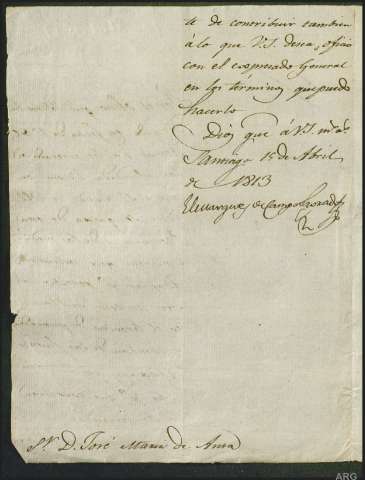 te de contribuir tambien
á lo que V.S. desea, oficio
con el expresado General
en los términos que puedo
hacerlo
Dios gue á V.S. ms. as.
Santiago 15 de Abril
de 1813
El Marques de Campo Sagrado
Sr. D. José Maria de
ARG